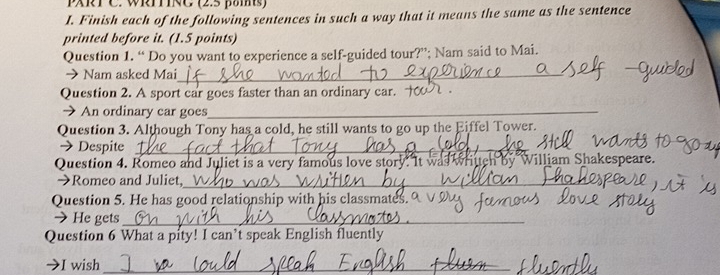 PART C. WRITING (2.5 points)
I. Finish each of the following sentences in such a way that it means the same as the sentence
printed before it. (1.5 points)
Question 1. “ Do you want to experience a self-guided tour?”; Nam said to Mai.
→ Nam asked Mai if she wanted to experience a self -guided
tour.
Question 2. A sport car goes faster than an ordinary car.
→ An ordinary car goes
Question 3. Although Tony has a cold, he still wants to go up the Eiffel Tower.
→ Despite the fact that Tony has a cold, he still wants to go up
Question 4. Romeo and Juliet is a very famous love story. It was written by William Shakespeare.
→Romeo and Juliet, who was written by willian Shakespeare, it is
a very famous love stoly
Question 5. He has good relationship with his classmates.
→ He gets on with his classmates.
Question 6 What a pity! I can’t speak English fluently
→I wish I could speak English fluently